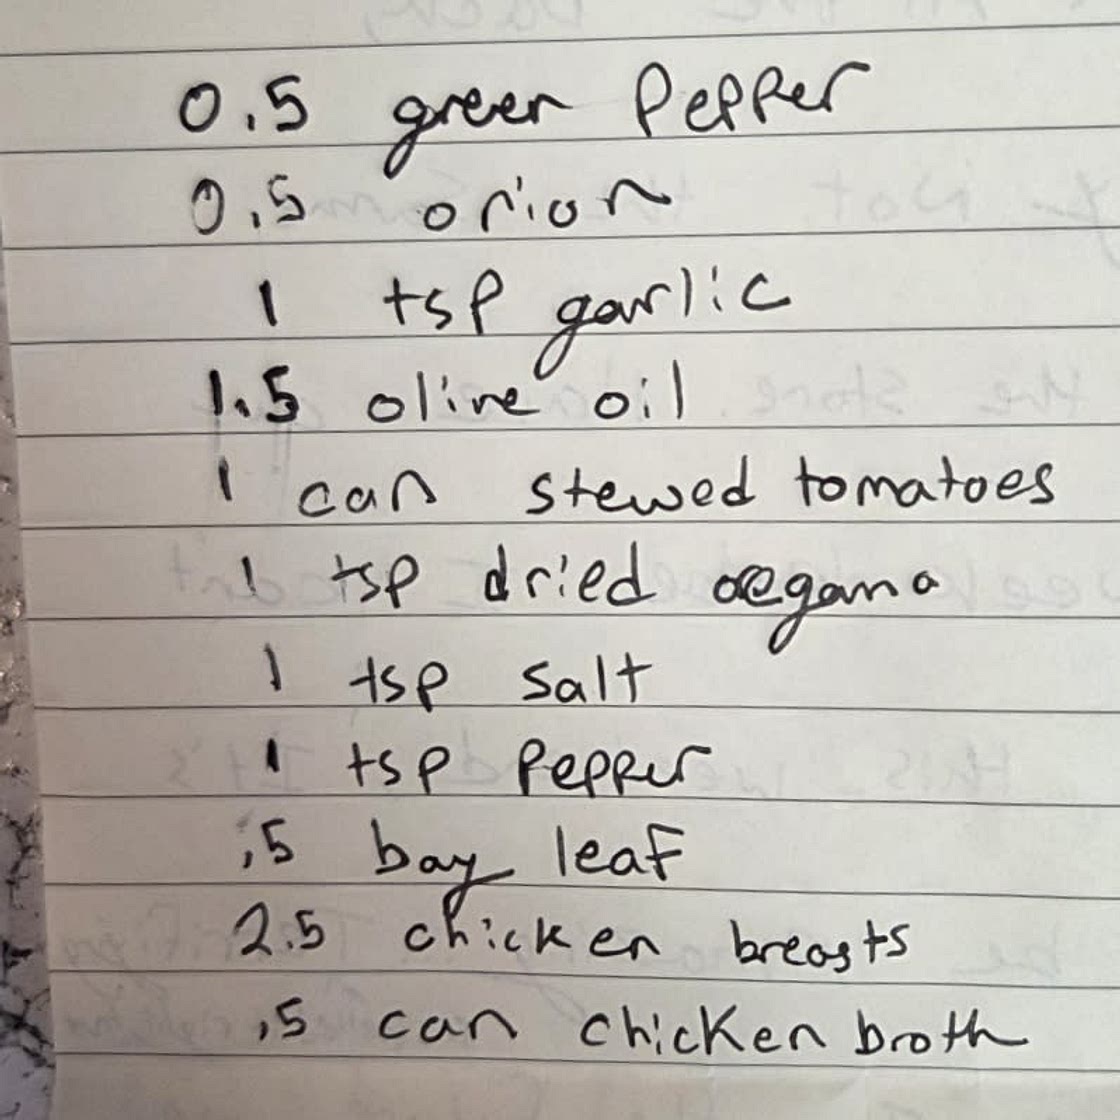 0.5 green pepper
0.5 onion
1 tsp garlic
1.5 olive oil
1 can stewed tomatoes
1 tsp dried oegano
1 tsp salt
1 tsp pepper
.5 bay leaf
2.5 chicken breasts
.5 can chicken broth